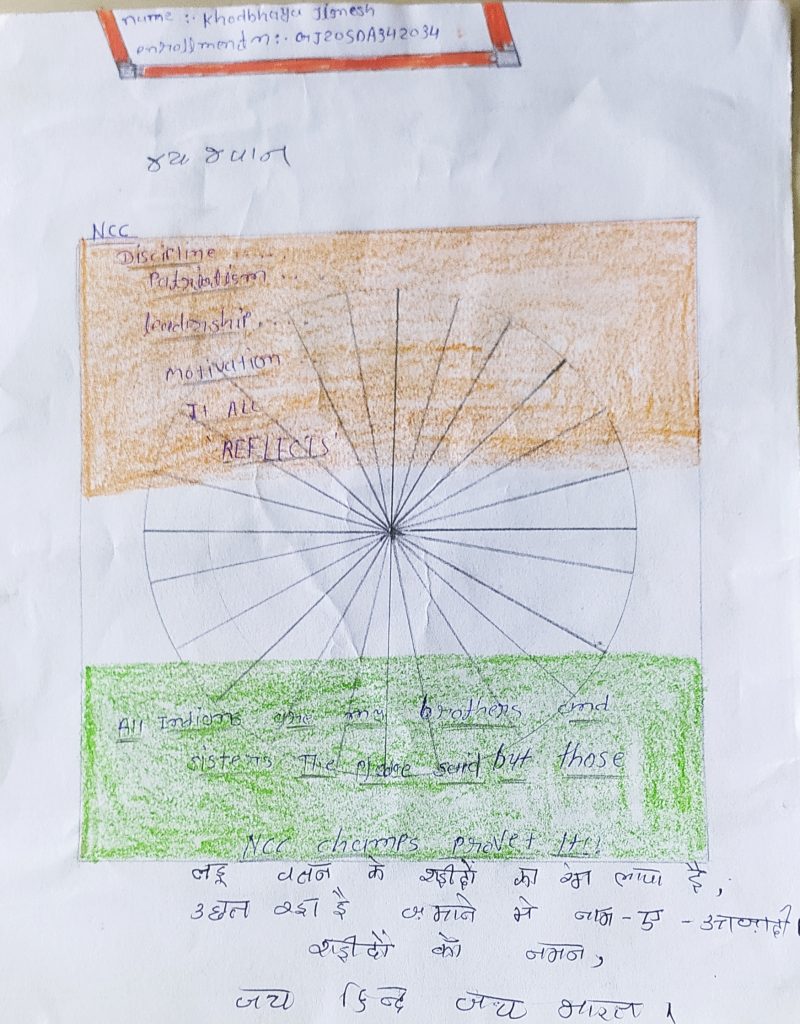 name :- Khodbhaya Jignesh
enrollment n:- GJ20SDA342034
જય જવાન
NCC
Discipline .....
Patriotism ...
leadership...
Motivation
It All
'REFLECTS'
All Indians are my brothers and
sisters The pledge said but those
NCC champs provet It!!
लहू वतन के शहीदों का रंग लाया है,
उछल रहा है ज़माने मे नाम-ए-आजादी।
शहीदों को नमन,
जय हिन्द जय भारत।